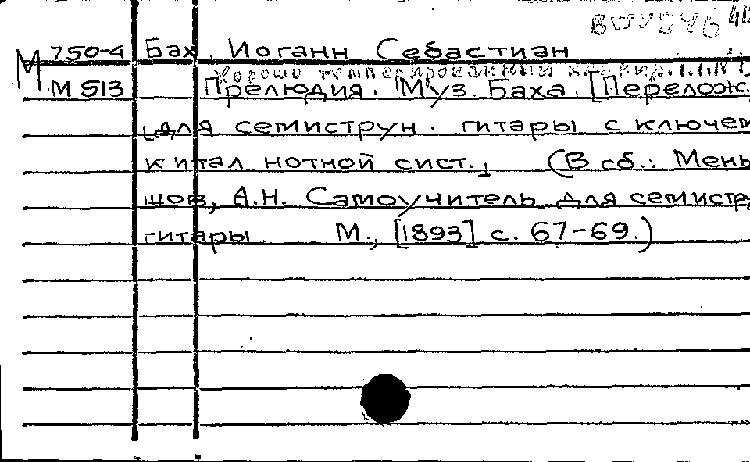 BWV 846
М 750-4 Бах, Иоганн Себастиан
Хорошо темперированный
М 513 Прелюдия. Муз. Баха. [Перелож.
для семиструн. гитары с ключем
к итал нотной сист.] (В сб.: Мень
шов, А.Н. Самоучитель для семистр.
гитары М., [1893] с. 67-69.)